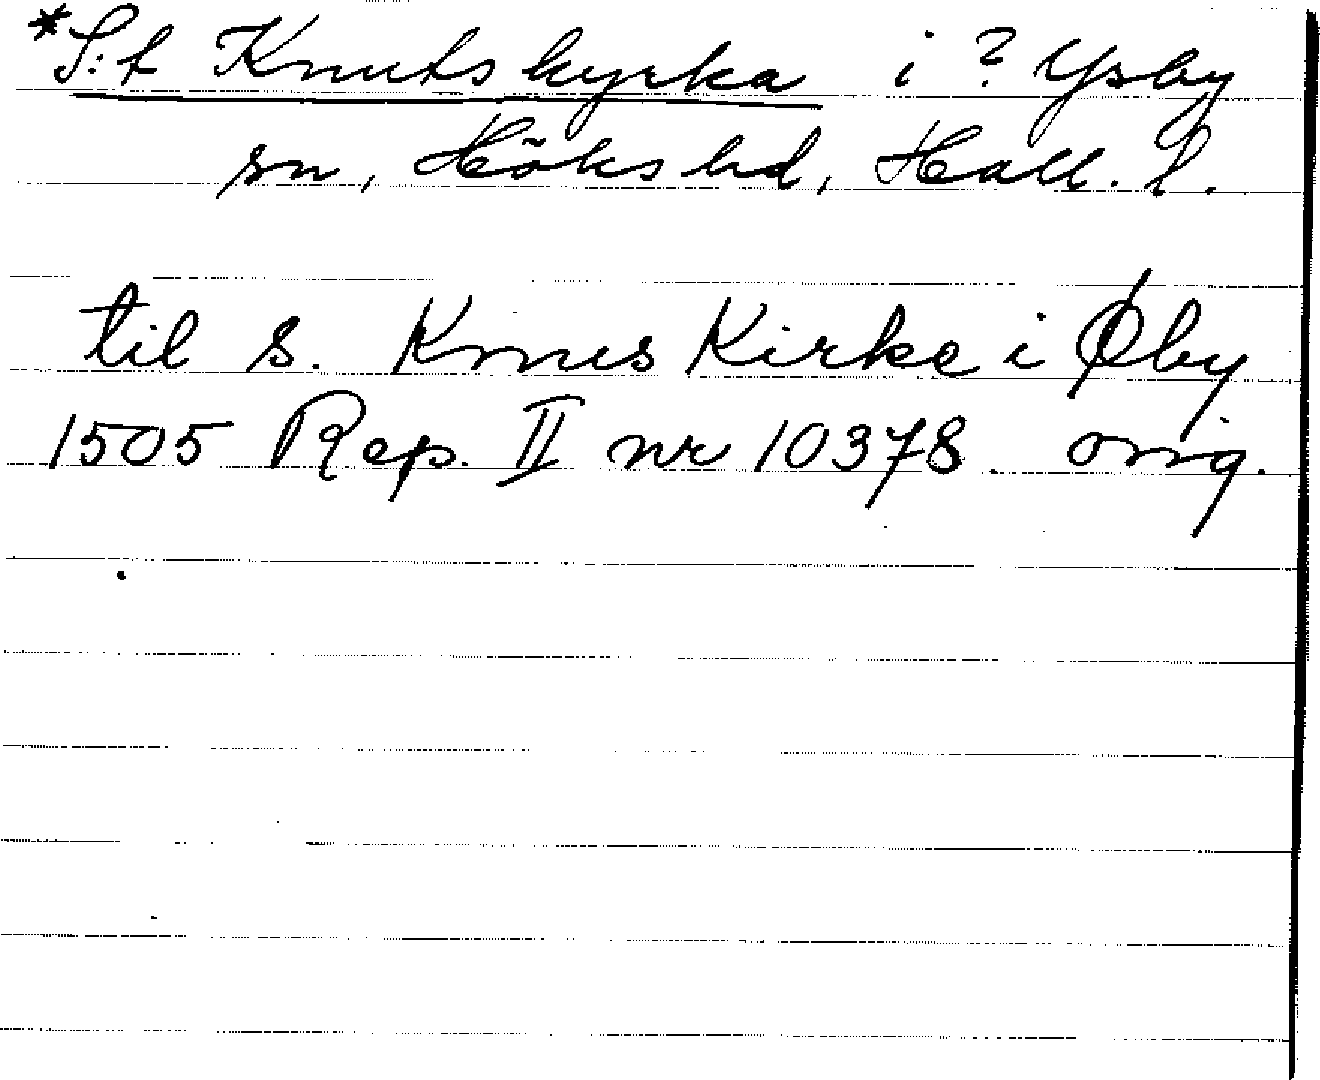 *S:t Knutskyrka i ? Ysby
sn, Höks hd, Hall. l.
til S. Knuts Kirke i Øby
1505 Rep. II nr 10378. orig.